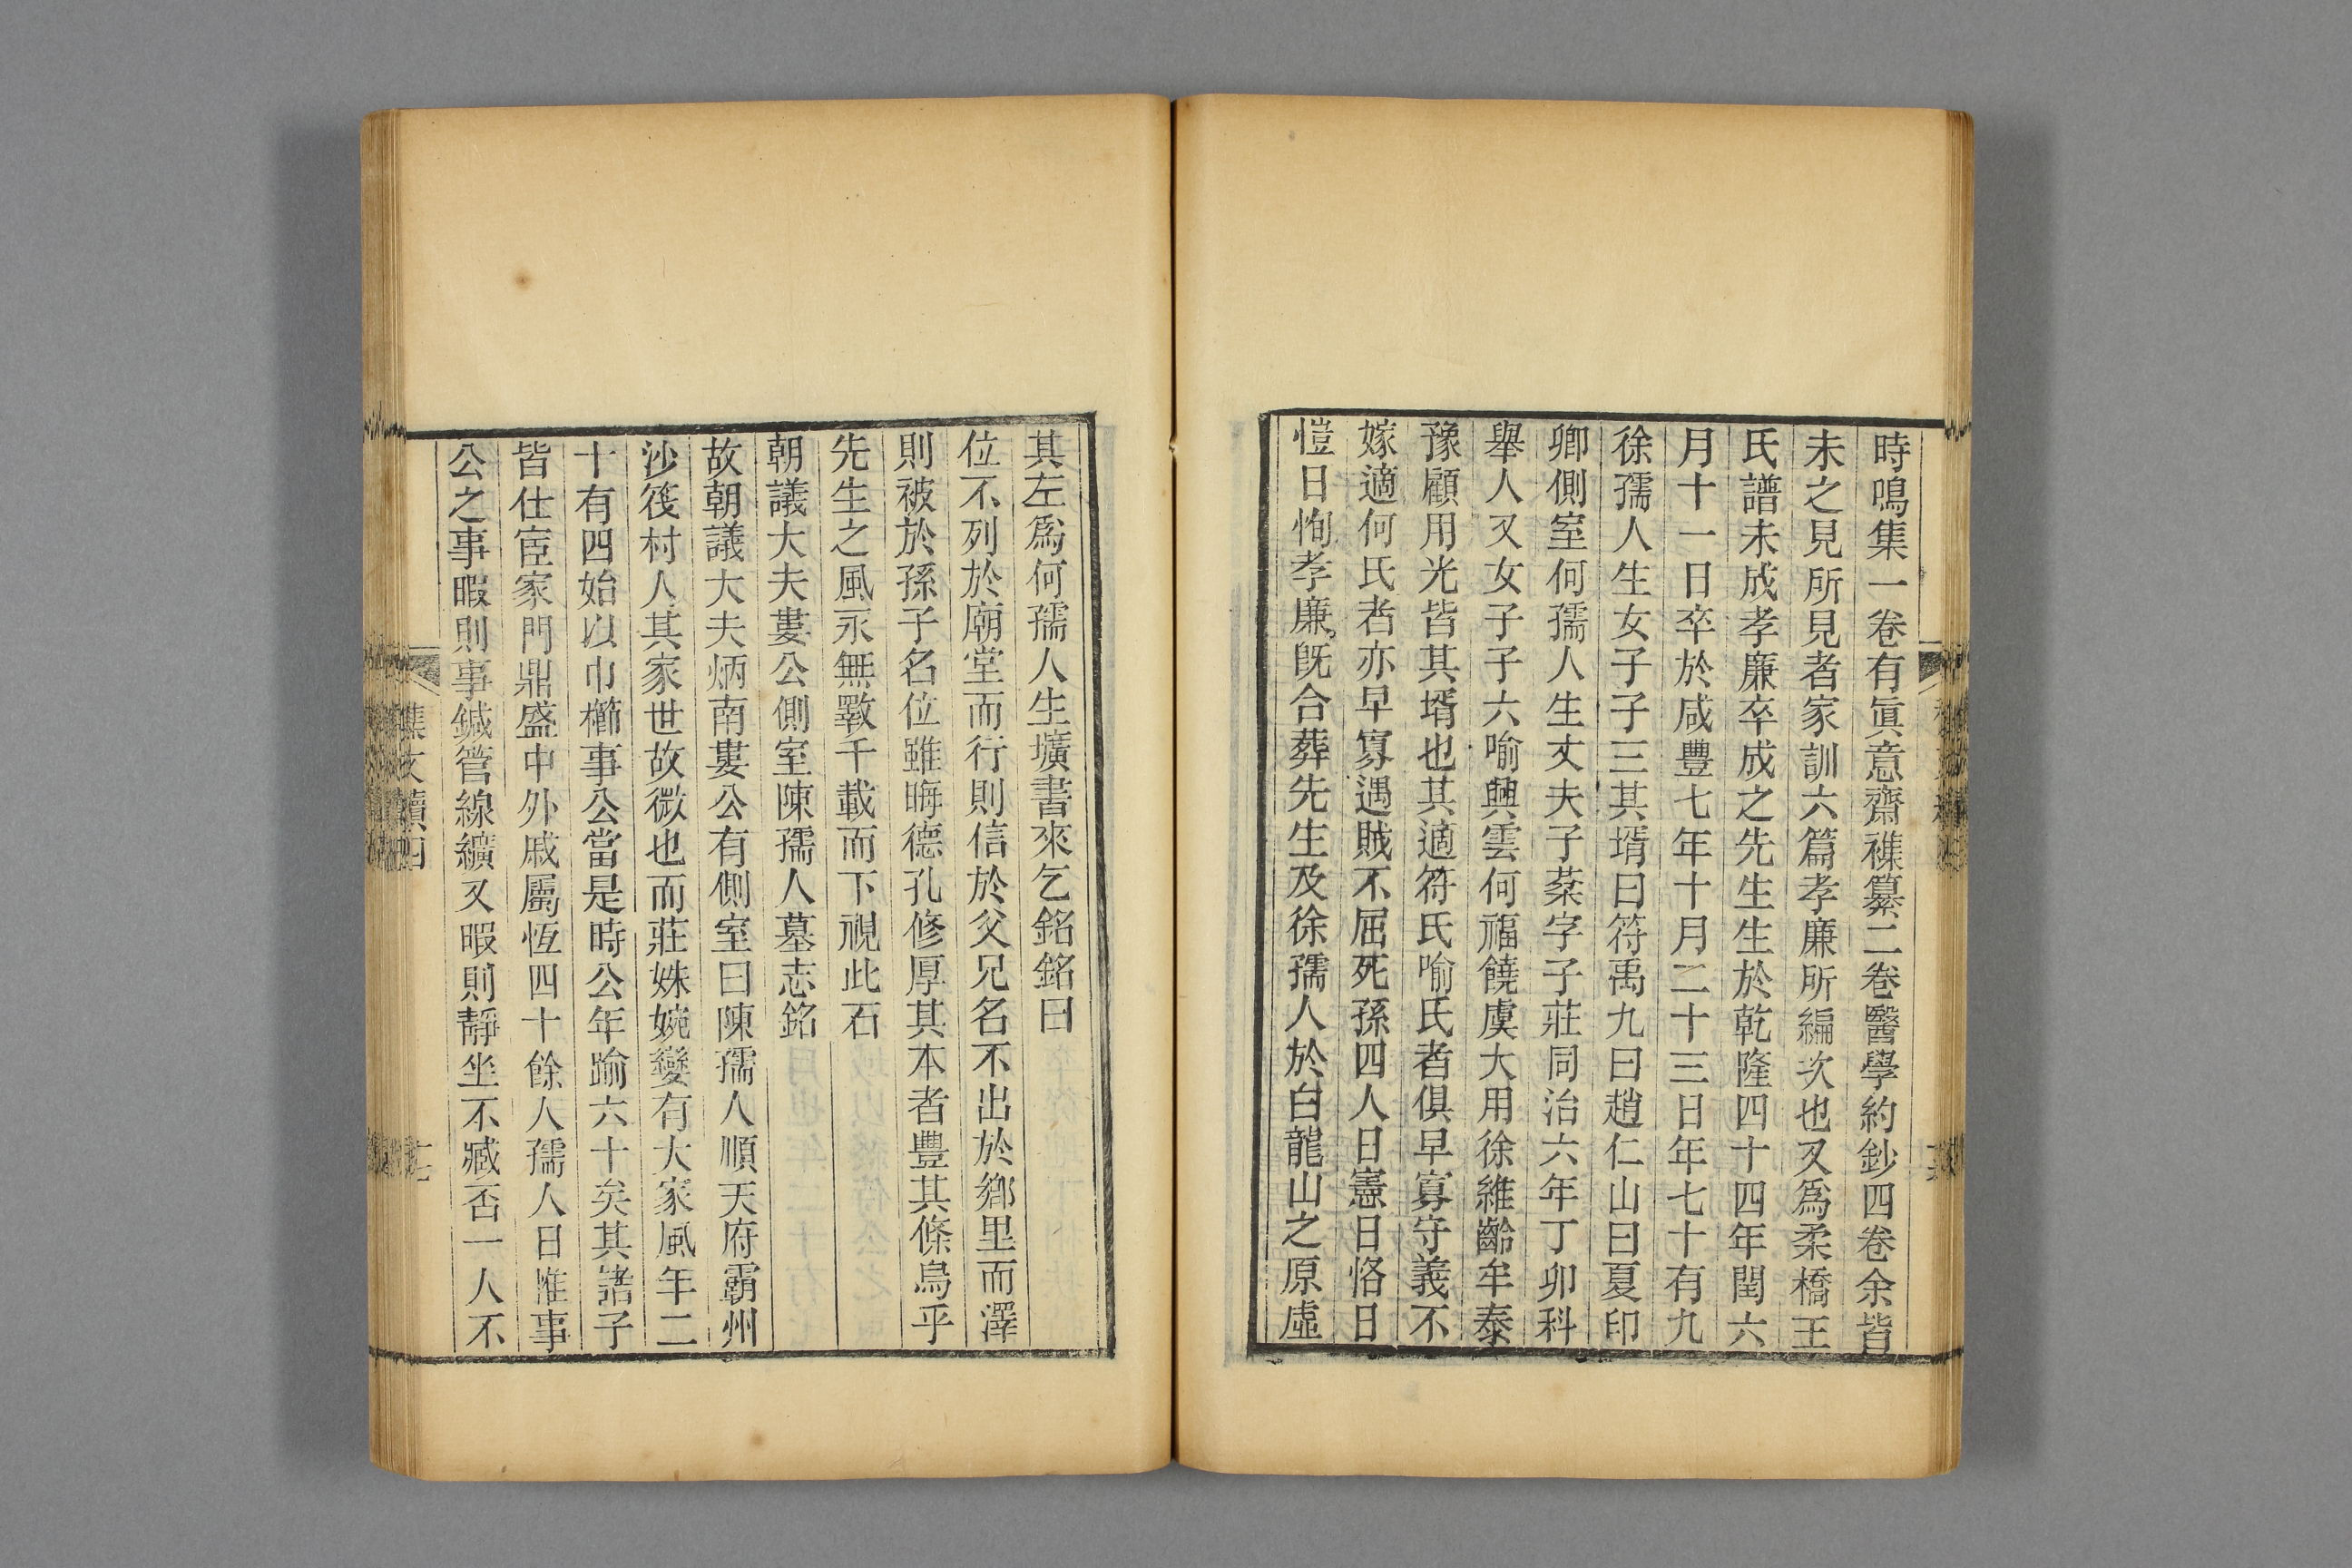 時鳴集一卷有眞意齋襍纂二卷醫學約鈔四卷余皆
未之見所見者家訓六篇孝廉所編次也又爲柔橋王
氏譜未成孝廉卒成之先生生於乾隆四十四年閏六
月十一日卒於咸豐七年十月二十三日年七十有九
徐孺人生女子子三其壻曰符禹九曰趙仁山曰夏印
卿側室何孺人生丈夫子棻字子莊同治六年丁卯科
舉人又女子子六喻興雲何福饒虞大用徐維齡牟泰
豫顧用光皆其壻也其適符氏喻氏者俱早寡守義不
嫁適何氏者亦早寡遇賊不屈死孫四人曰憲曰恪曰
愷曰恂孝廉旣合葬先生及徐孺人於白龍山之原虛
其左爲何孺人生壙書來乞銘銘曰
位不列於廟堂而行則信於父兄名不出於鄕里而澤
則被於孫子名位雖晦德孔修厚其本者豐其條烏乎
先生之風永無斁千載而下視此石
朝議大夫婁公側室陳孺人墓志銘
故朝議大夫炳南婁公有側室曰陳孺人順天府霸州
沙筏村人其家世故微也而莊姝婉孌有大家風年二
十有四始以巾櫛事公當是時公年踰六十矣其諸子
皆仕宦家門鼎盛中外戚屬恆四十餘人孺人日惟事
公之事暇則事鍼管線纊又暇則靜坐不臧否一人不
襍文續四